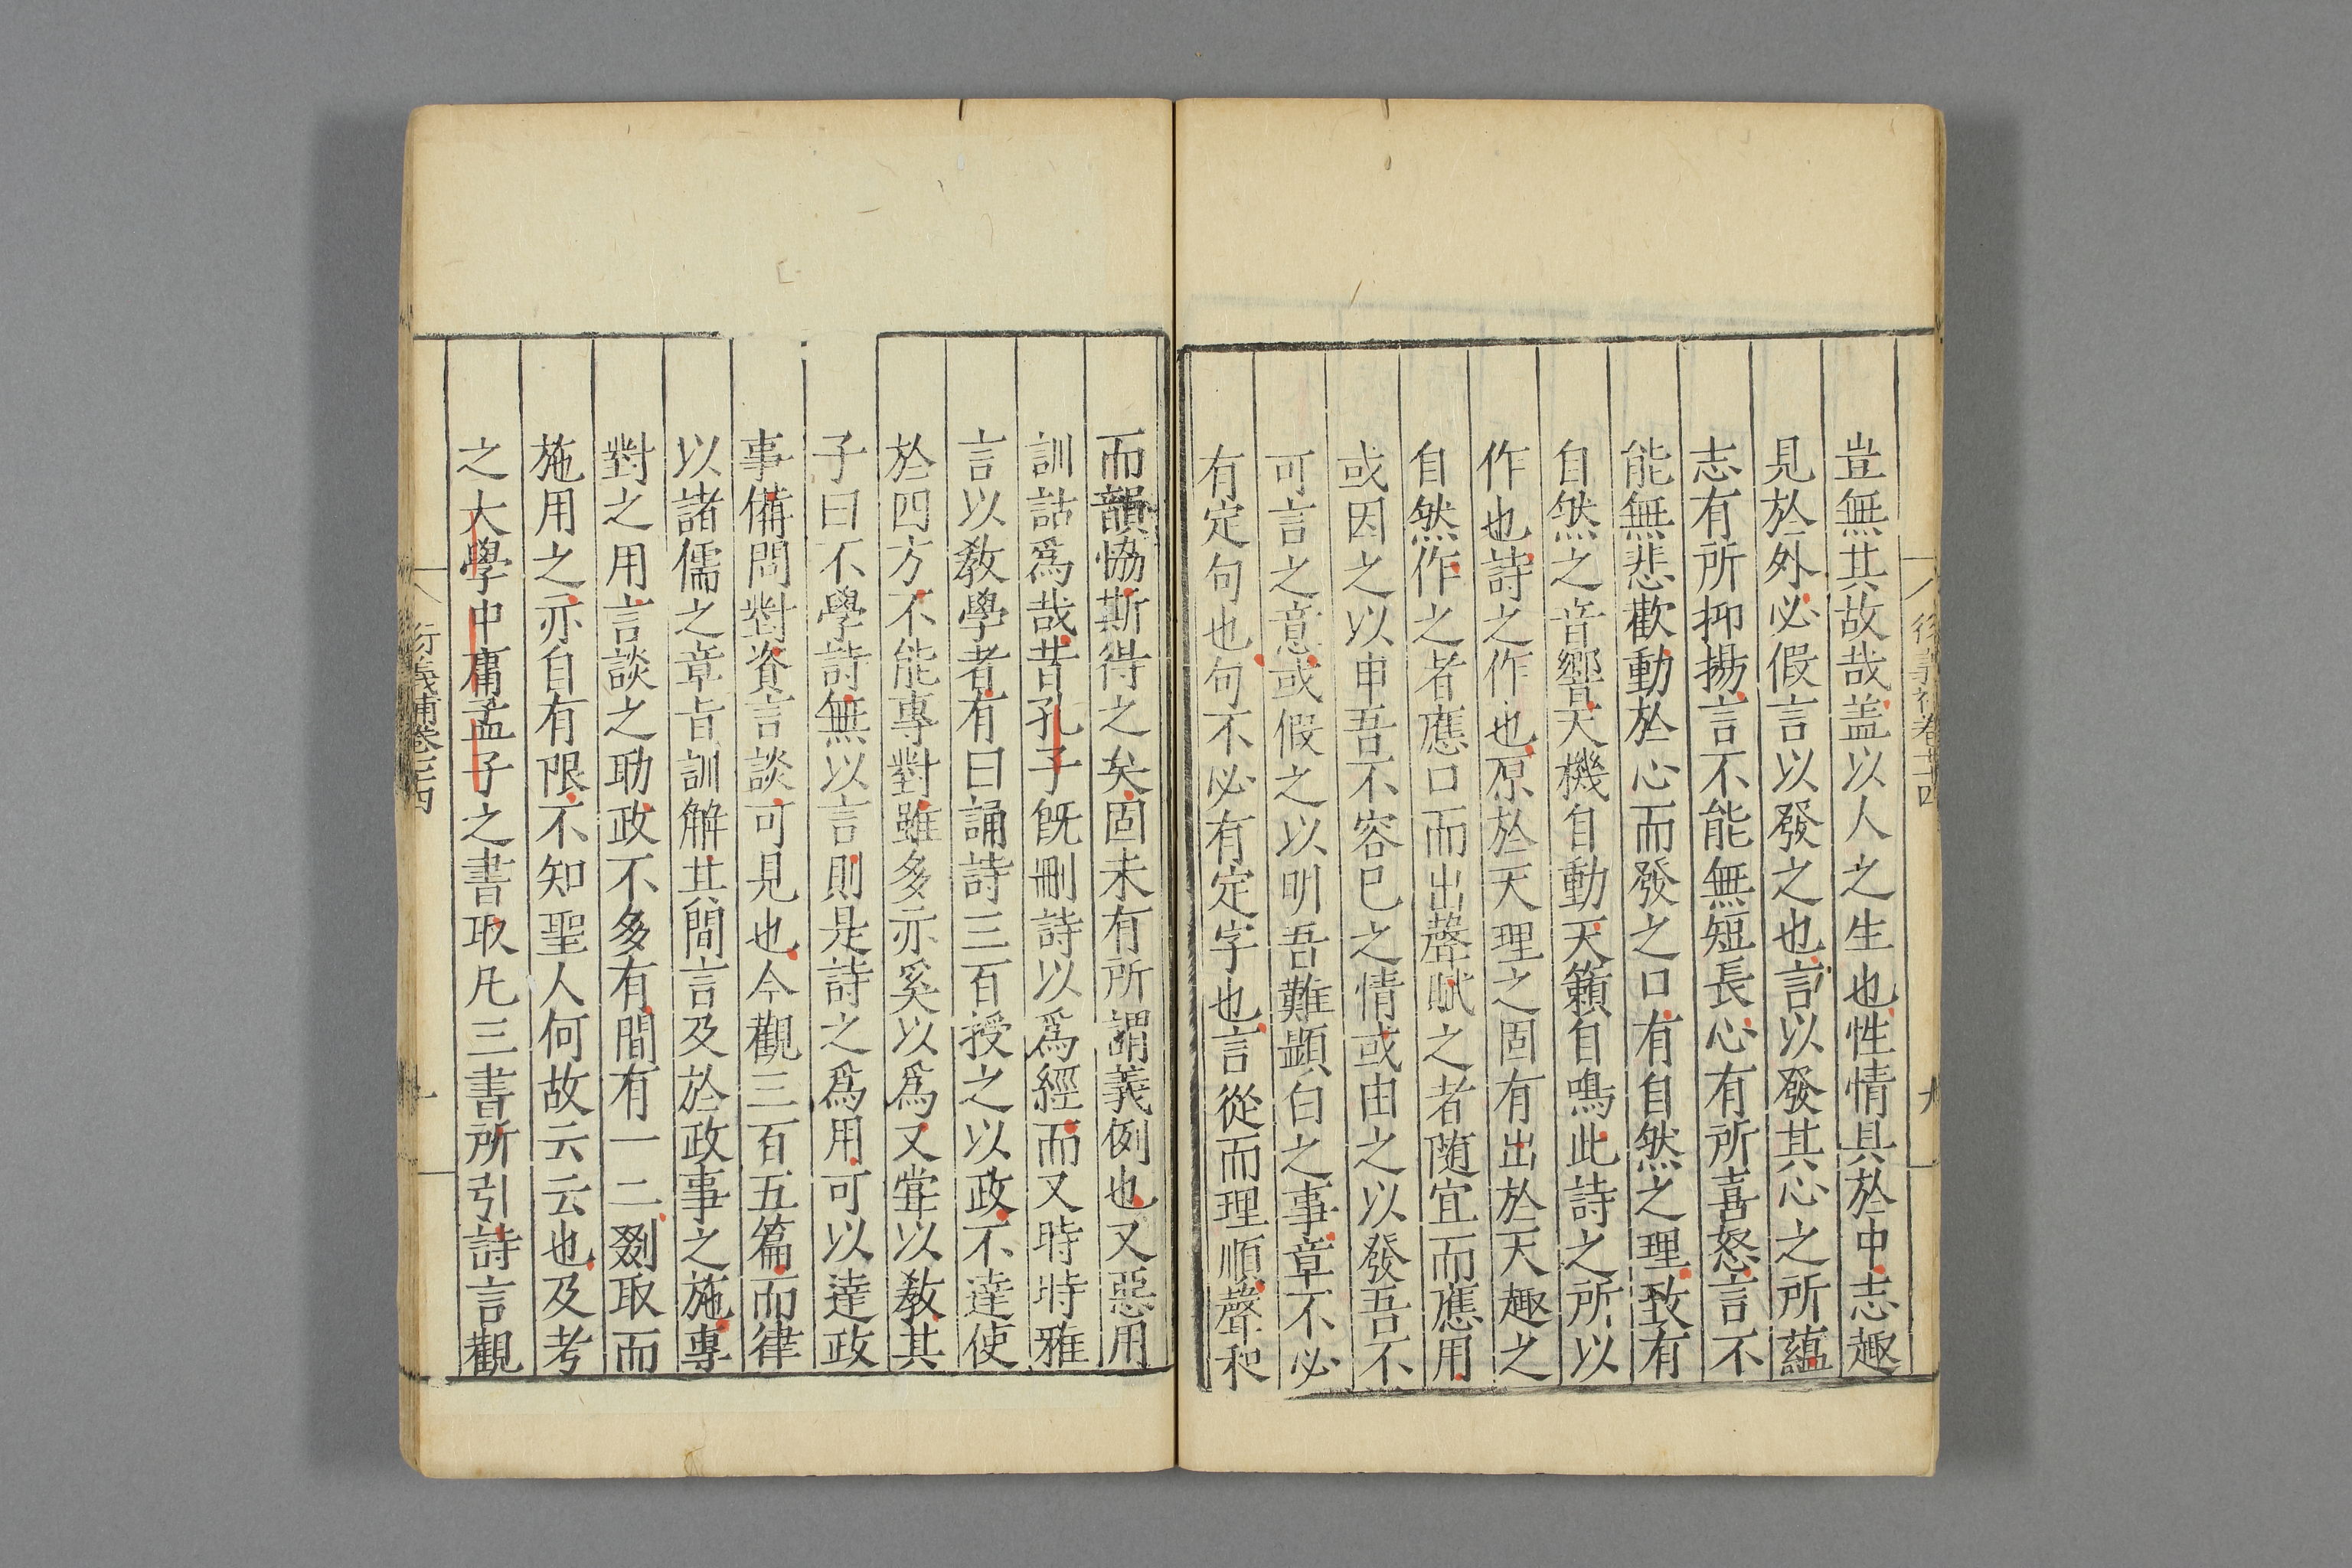 豈無其故哉盖以人之生也性情具於中志趣
見於外必假言以發之也言以發其心之所蘊
志有所抑揚言不能無短長心有所喜怒言不
能無悲歡動於心而發之口有自然之理致有
自然之音響天機自動天籟自鳴此詩之所以
作也詩之作也原於天理之固有出於天趣之
自然作之者應口而出聲賦之者随宜而應用
或因之以申吾不容已之情或由之以發吾不
可言之意或假之以明吾難顯白之事章不必
有定句也句不必有定字也言從而理順聲和
而韻恊斯得之矣固未有所謂義例也又惡用
訓詁爲哉昔孔子既刪詩以爲經而又時時雅
言以教學者有曰誦詩三百授之以政不達使
於四方不能專對雖多亦奚以爲又甞以教其
子曰不學詩無以言則是詩之爲用可以達政
事備問對資言談可見也今觀三百五篇而律
以諸儒之章旨訓解其間言及於政事之施專
對之用言談之助政不多有間有一二剟取而
施用之亦自有限不知聖人何故云云也及考
之大學中庸孟子之書取凡三書所引詩言觀